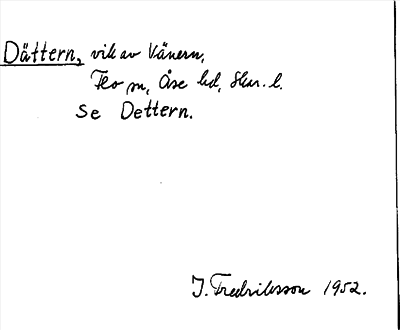 Dättern, vik av Vänern,
Flo sn, Åse hd, Skar. l.
Se Dettern.
I. Fredriksson 1952.